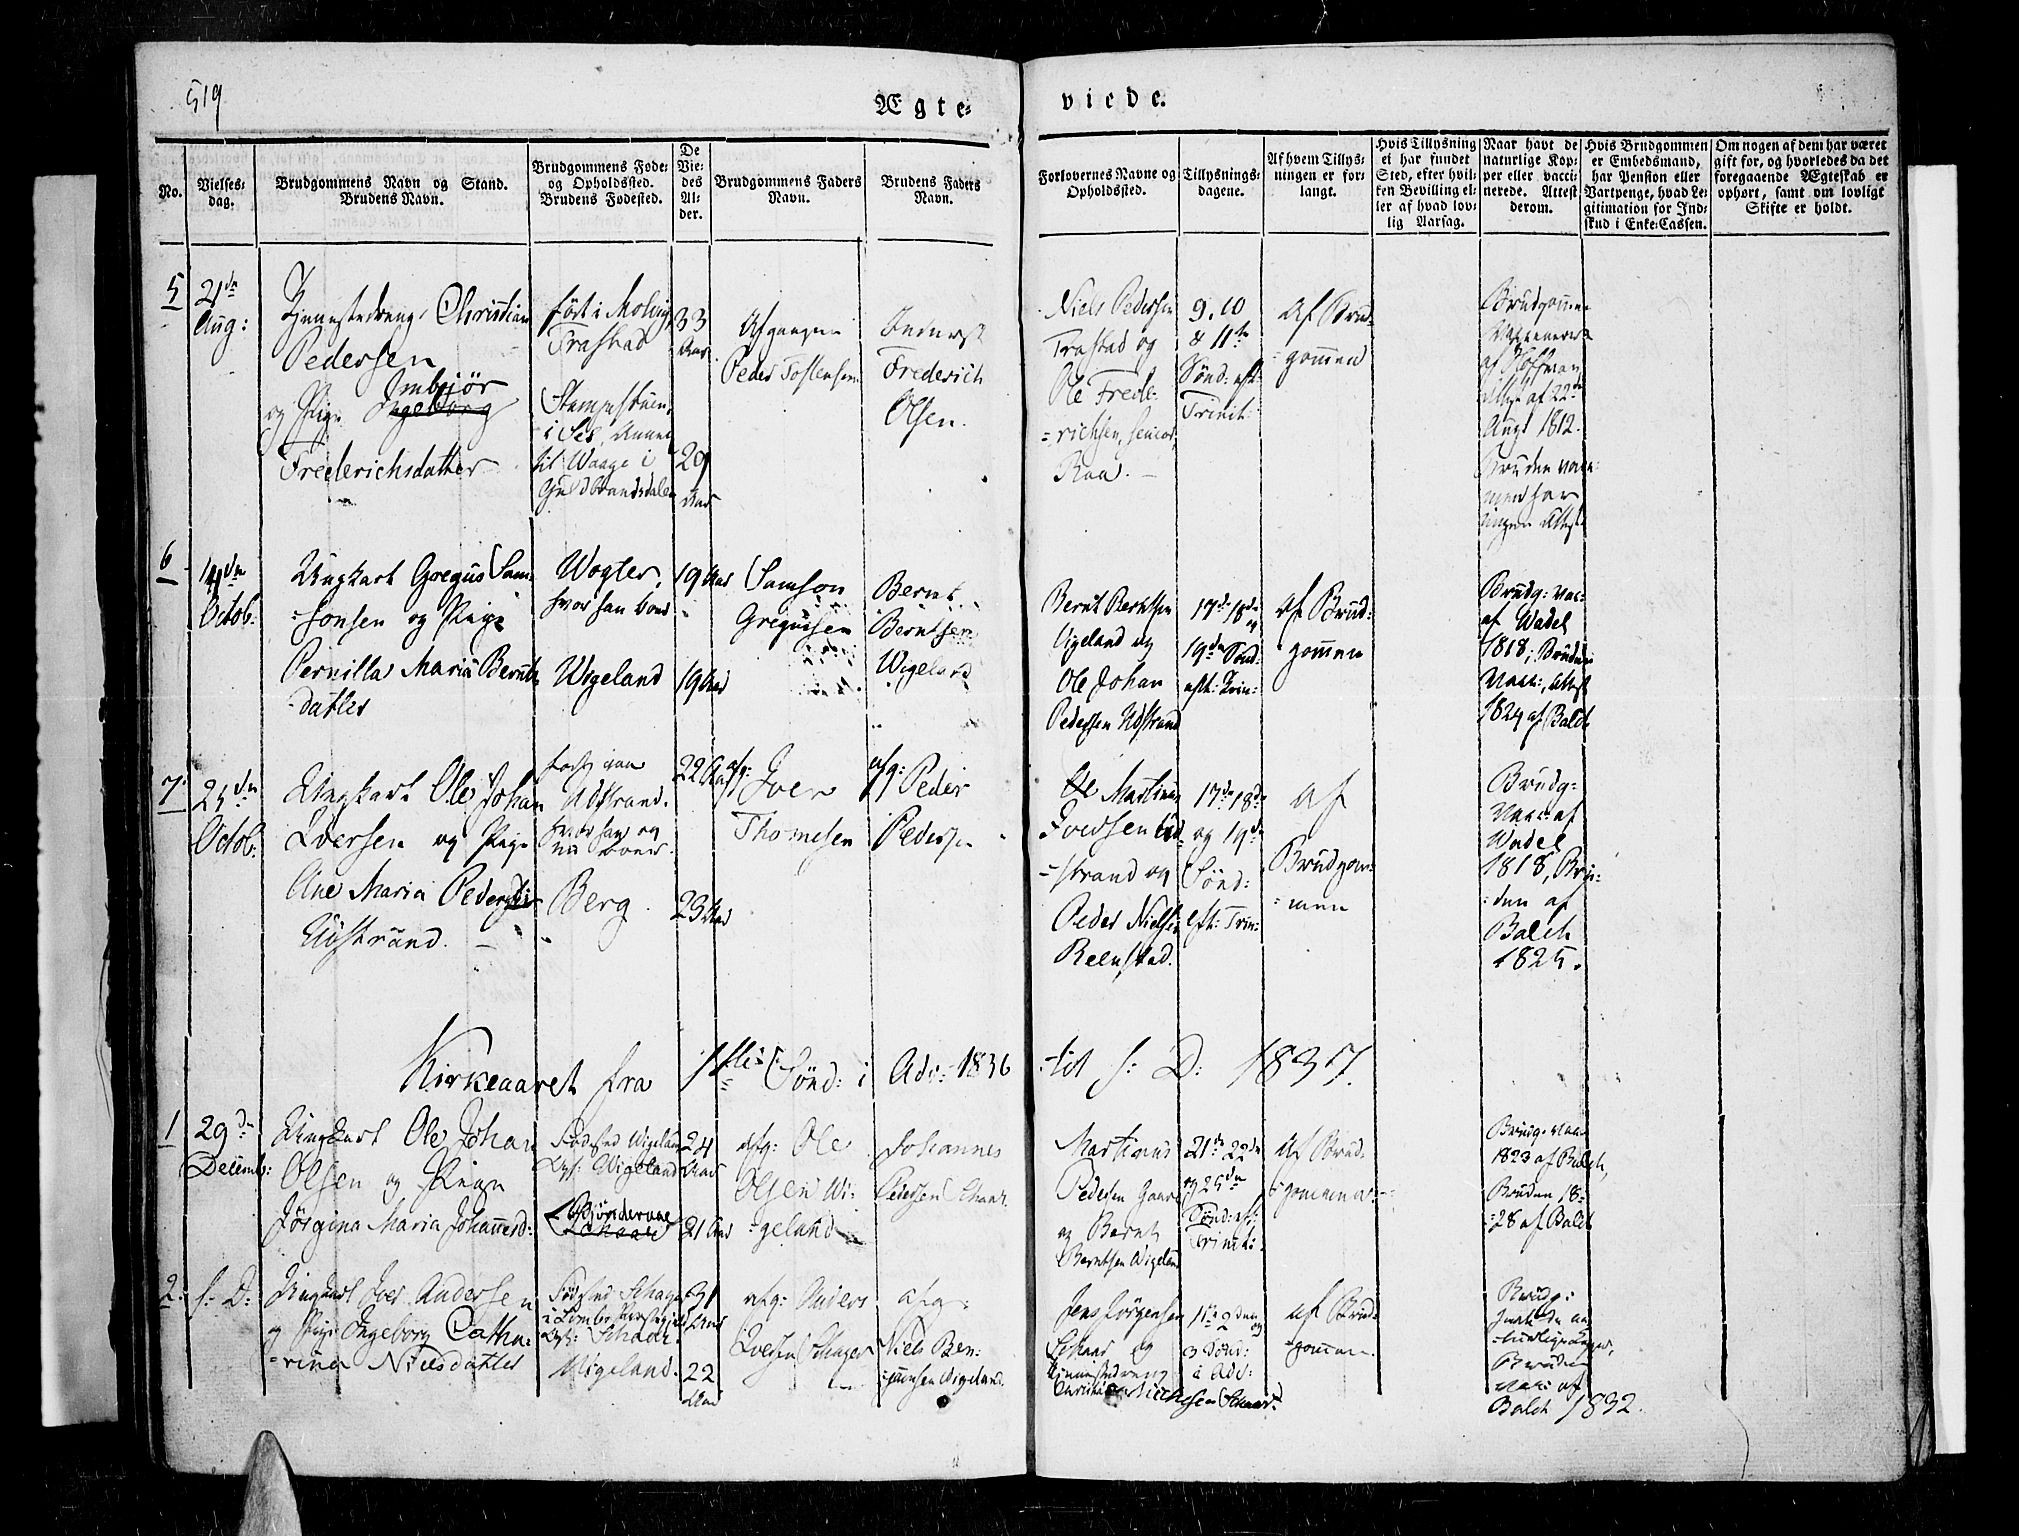 519
Ægte-
viede.
No.
Vielses-
dag.
Brudgommens Navn og Stand.
Brudens Navn.
Brudgommens Føde-
og Opholdssted.
Brudens Fødested.
De
Vie-
des
Al-
der.
Brudgommens Faders
Navn.
Brudens Faders
Navn.
Forlovernes Navne og
Opholdssted.
Tillysnings-
dagene.
Af hvem Tillys-
ningen er for-
langt.
Hvis Tillysning
ei har fundet
Sted, efter hvil-
ken Bevilling el-
ler af hvad lov-
lig Aarsag.
Naar havt de
naturlige Kop-
per eller vacci-
nerede. Attest
derom.
Hvis Brudgommen
er Embedsmand,
har Pension eller
Vartpenge, hvad Le-
gitimation for Ind-
skud i Enke-Cassen.
Om nogen af dem har været
gift før, og hvorledes da det
foregaaende Ægteskab er
ophørt, samt om lovligt
Skifte er holdt.
5
21de
Aug:
Tjenestedreng Christian
Pedersen
Imbiør
og Pige Ingeborg
Frederichsdatter
født i
Trastad
i Sel, Annex
til Waage i
Guldbrandsdalen
33
Aar.
29
Aar
Afgangne
Peder Tostensen
Frederich
Olsen.
Niels Pedersen
Trastad og
Ole Frede-
richsen, senior,
Raa.
9, 10
& 11te
Sönd: eft:
Trinit:
Af Brud-
gommen
Brudgommen
af Hoffman
Attest af 22de
Augt 1812.
Bruden
har
ingen Attest
6
14de
Octob:
Ungkarl Gregus Sam-
sonsen og Pige
Pernilla Maria Bernts-
datter
Wogter,
hvor han boer
Wigeland
19 Aar
19 Aar
Samson
Gregusen
Bernt
Berntsen
Wigeland
Bernt Berntsen
Vigeland og
Ole Johan
Pedersen Udstrand
17de 18de
19de Sönd:
eft: Trin:
af Brud-
gommen
Brudg: vac:
af Wadel
1818; Bruden
Vacc:, Attest
1824 af Balch
7
25de
Octob:
Ungkarl Ole Johan
Iversen og Pige
Ane Maria Pedersdtr
Udstrand.
Udstrand.
hvor han og
nu boer.
Berg
22 Aar
23 Aar
afg: Iver
Thomesen
afg: Peder
Pedersen
Ole Martinus
Iversen Ud-
strand og
Peder Nielsen
Reenstad.
17de 18de
og 19de
Sönd:
eft: Trin:
af
Brudgom-
men
Brudg:
Vac: af
Wadel
1818, Bru-
den af
Balch
1825.
Kirkeaaret fra 1ste Sönd: i Adv: 1836 -til s: D: 1837.
1
29de
Decemb:
Ungkarl Ole Johan
Olsen og Pige
Jørgina Maria Johannesd:
Fødested Wigeland
Wigeland
Bjöndervae
24
Aar
21 Aar
afg: Ole
Olsen Wi-
geland
Johannes
Pedersen Schaar
Martinus
Pedersen Gaare
og Bernt
Berntsen Wigeland
21de 22de
og 25de
Sönd: eft:
Trinit:
Af Brud-
gommen
Brudg: Vac:
1823 af Balch,
Bruden 18-
28 af Balch
2.
s: D:
Ungkarl Iver Andersen
og Pige Ingeborg Catha-
rina Nielsdatter
Fødested
Schaar
Wigeland.
31
Aar
22
Aar
afg: Anders
Iversen
afg:
Niels Ben-
jamsen Wigeland.
Jens Jörgensen
Schaar og
Tjenestedreng
Schaar
1te 2den og
3 Sönd:
i Adv:
af Brud-
gommen.
Brudg:
havt de na-
turlige Kopper,
Bruden
vac: af
Balch 1832.